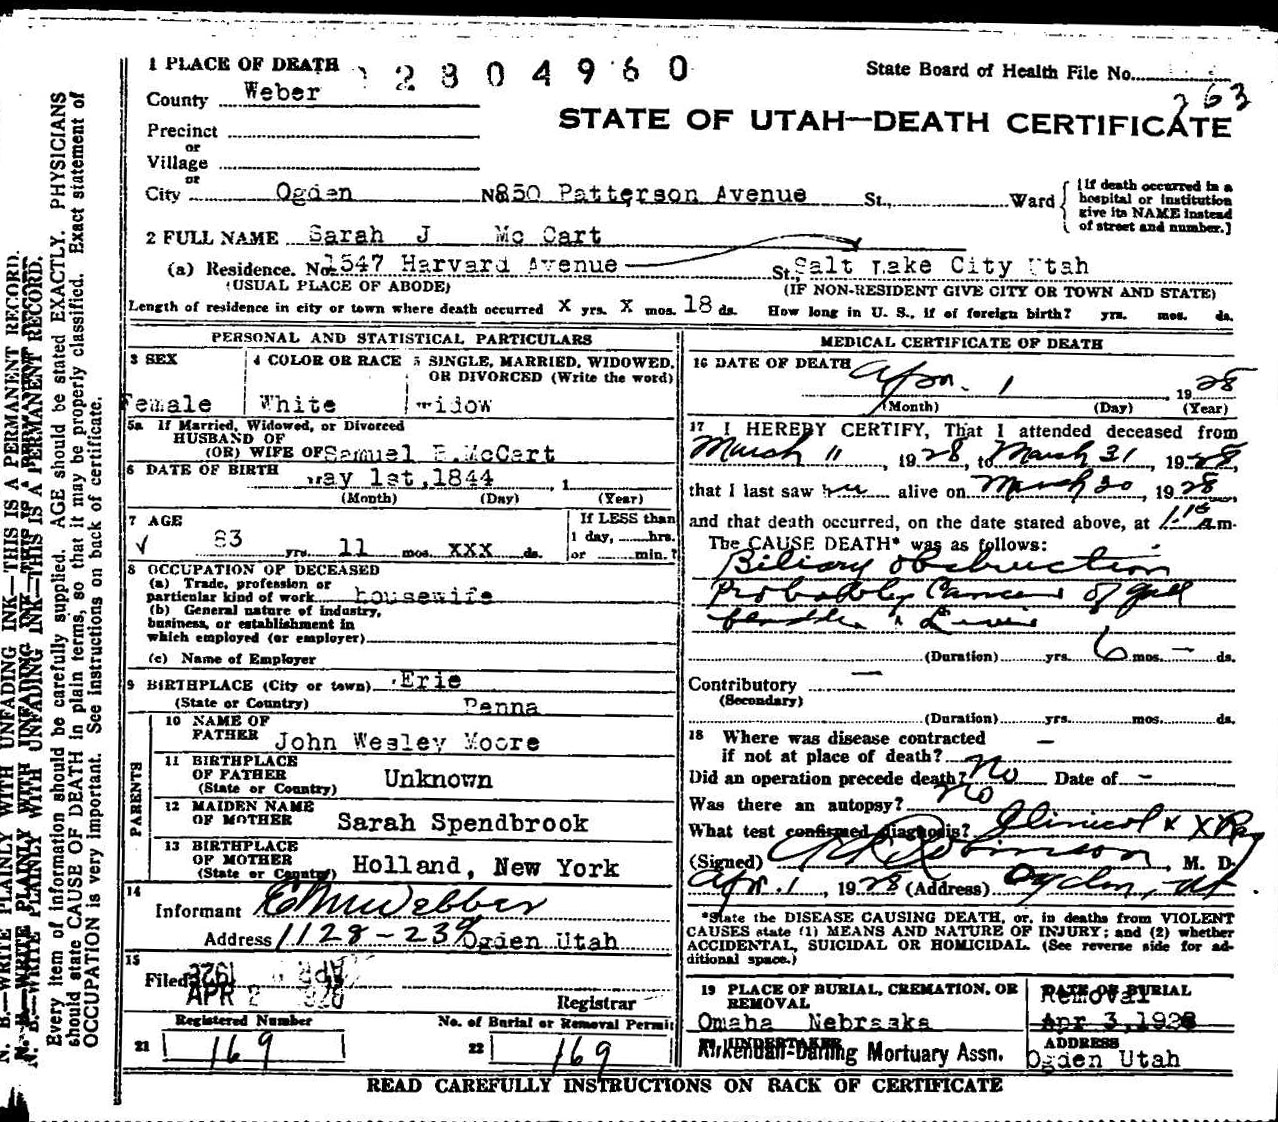 1 PLACE OF DEATH 2 8 0 4 9 6 0 State Board of Health File No.
263
County Weber
STATE OF UTAH—DEATH CERTIFICATE
Precinct
or
Village
or
City Ogden No 850 Patterson Avenue St., Ward
[If death occurred in a hospital or institution give its NAME instead of street and number.]
2 FULL NAME Sarah J Mc Cart
(a) Residence. No. 1547 Harvard Avenue St. Salt Lake City Utah
(USUAL PLACE OF ABODE) (IF NON-RESIDENT GIVE CITY OR TOWN AND STATE)
Length of residence in city or town where death occurred X yrs. X mos. 18 ds. How long in U. S., if of foreign birth? yrs. mos. ds.
PERSONAL AND STATISTICAL PARTICULARS
3 SEX
Female
4 COLOR OR RACE
White
5 SINGLE, MARRIED, WIDOWED, OR DIVORCED (Write the word)
widow
5a If Married, Widowed, or Divorced
HUSBAND OF
(OR) WIFE OF Samuel McCart
6 DATE OF BIRTH May 1st, 1844 , 1
(Month) (Day) (Year)
7 AGE
83 yrs. 11 mos. XXX ds.
If LESS than
1 day, hrs.
or min.?
8 OCCUPATION OF DECEASED
(a) Trade, profession or
particular kind of work housewife
(b) General nature of industry,
business, or establishment in
which employed (or employer)
(c) Name of Employer
9 BIRTHPLACE (City or town) Erie
(State or Country) Penna
PARENTS
10 NAME OF FATHER John Wesley Moore
11 BIRTHPLACE OF FATHER (State or Country) Unknown
12 MAIDEN NAME OF MOTHER Sarah Spendbrook
13 BIRTHPLACE OF MOTHER (State or Country) Holland, New York
14
Informant E M Webber
Address 1128 - 23rd Ogden Utah
15
Filed APR 2 1928 Registrar
Registered Number No. of Burial or Removal Permit
21 169 22 169
MEDICAL CERTIFICATE OF DEATH
16 DATE OF DEATH Apr. 1 , 1928
(Month) (Day) (Year)
17 I HEREBY CERTIFY, That I attended deceased from
March 11 , 1928, to March 31 , 1928,
that I last saw her alive on March 30 , 1928,
and that death occurred, on the date stated above, at am.
The CAUSE DEATH* was as follows:
Biliary obstruction
Probably Cancer of gall
bladder & Liver
(Duration) yrs. 6 mos. — ds.
Contributory —
(Secondary)
(Duration) yrs. mos. ds.
18 Where was disease contracted
if not at place of death? —
Did an operation precede death? No Date of —
Was there an autopsy? no
What test confirmed diagnosis? Clinical & X Ray
(Signed) Robinson , M. D.
Apr. 1 , 1928 (Address) Ogden, Ut.
*State the DISEASE CAUSING DEATH, or, in deaths from VIOLENT
CAUSES state (1) MEANS AND NATURE OF INJURY; and (2) whether
ACCIDENTAL, SUICIDAL OR HOMICIDAL. (See reverse side for ad-
ditional space.)
19 PLACE OF BURIAL, CREMATION, OR REMOVAL
Omaha Nebraska
DATE OF BURIAL
Removal
Apr 3, 1928
UNDERTAKER
Kirkendall-Darling Mortuary Assn.
ADDRESS
Ogden Utah
READ CAREFULLY INSTRUCTIONS ON BACK OF CERTIFICATE
N. B.—WRITE PLAINLY WITH UNFADING INK—THIS IS A PERMANENT RECORD.
Every item of information should be carefully supplied. AGE should be stated EXACTLY. PHYSICIANS
should state CAUSE OF DEATH in plain terms, so that it may be properly classified. Exact statement of
OCCUPATION is very important. See instructions on back of certificate.